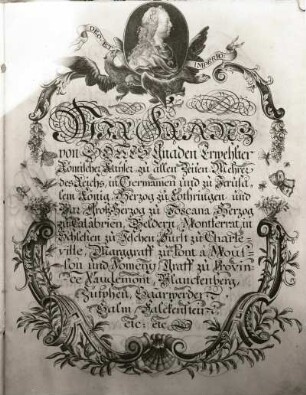 DEO ET IMPERIO
Wir Franz
von Gottes Gnaden Erwehlter
Römischer Kaiser zu allen Zeiten Mehrer
des Reichs, in Germanien und zu Jerusa-
lem König, Herzog zu Lothringen und
Bar, Groß-Herzog zu Toscana, Herzog
zu Calabrien, Geldern, Montferrat, in
Schlesien zu Teschen, Fürst zu Charle-
ville, Marggraff zu Pont a Mous-
son und Nomeny, Graff zu Provin-
ce, Vaudemont, Blanckenberg,
Zütphen, Saarwerden,
Salm, Falckenstein
etc: etc: